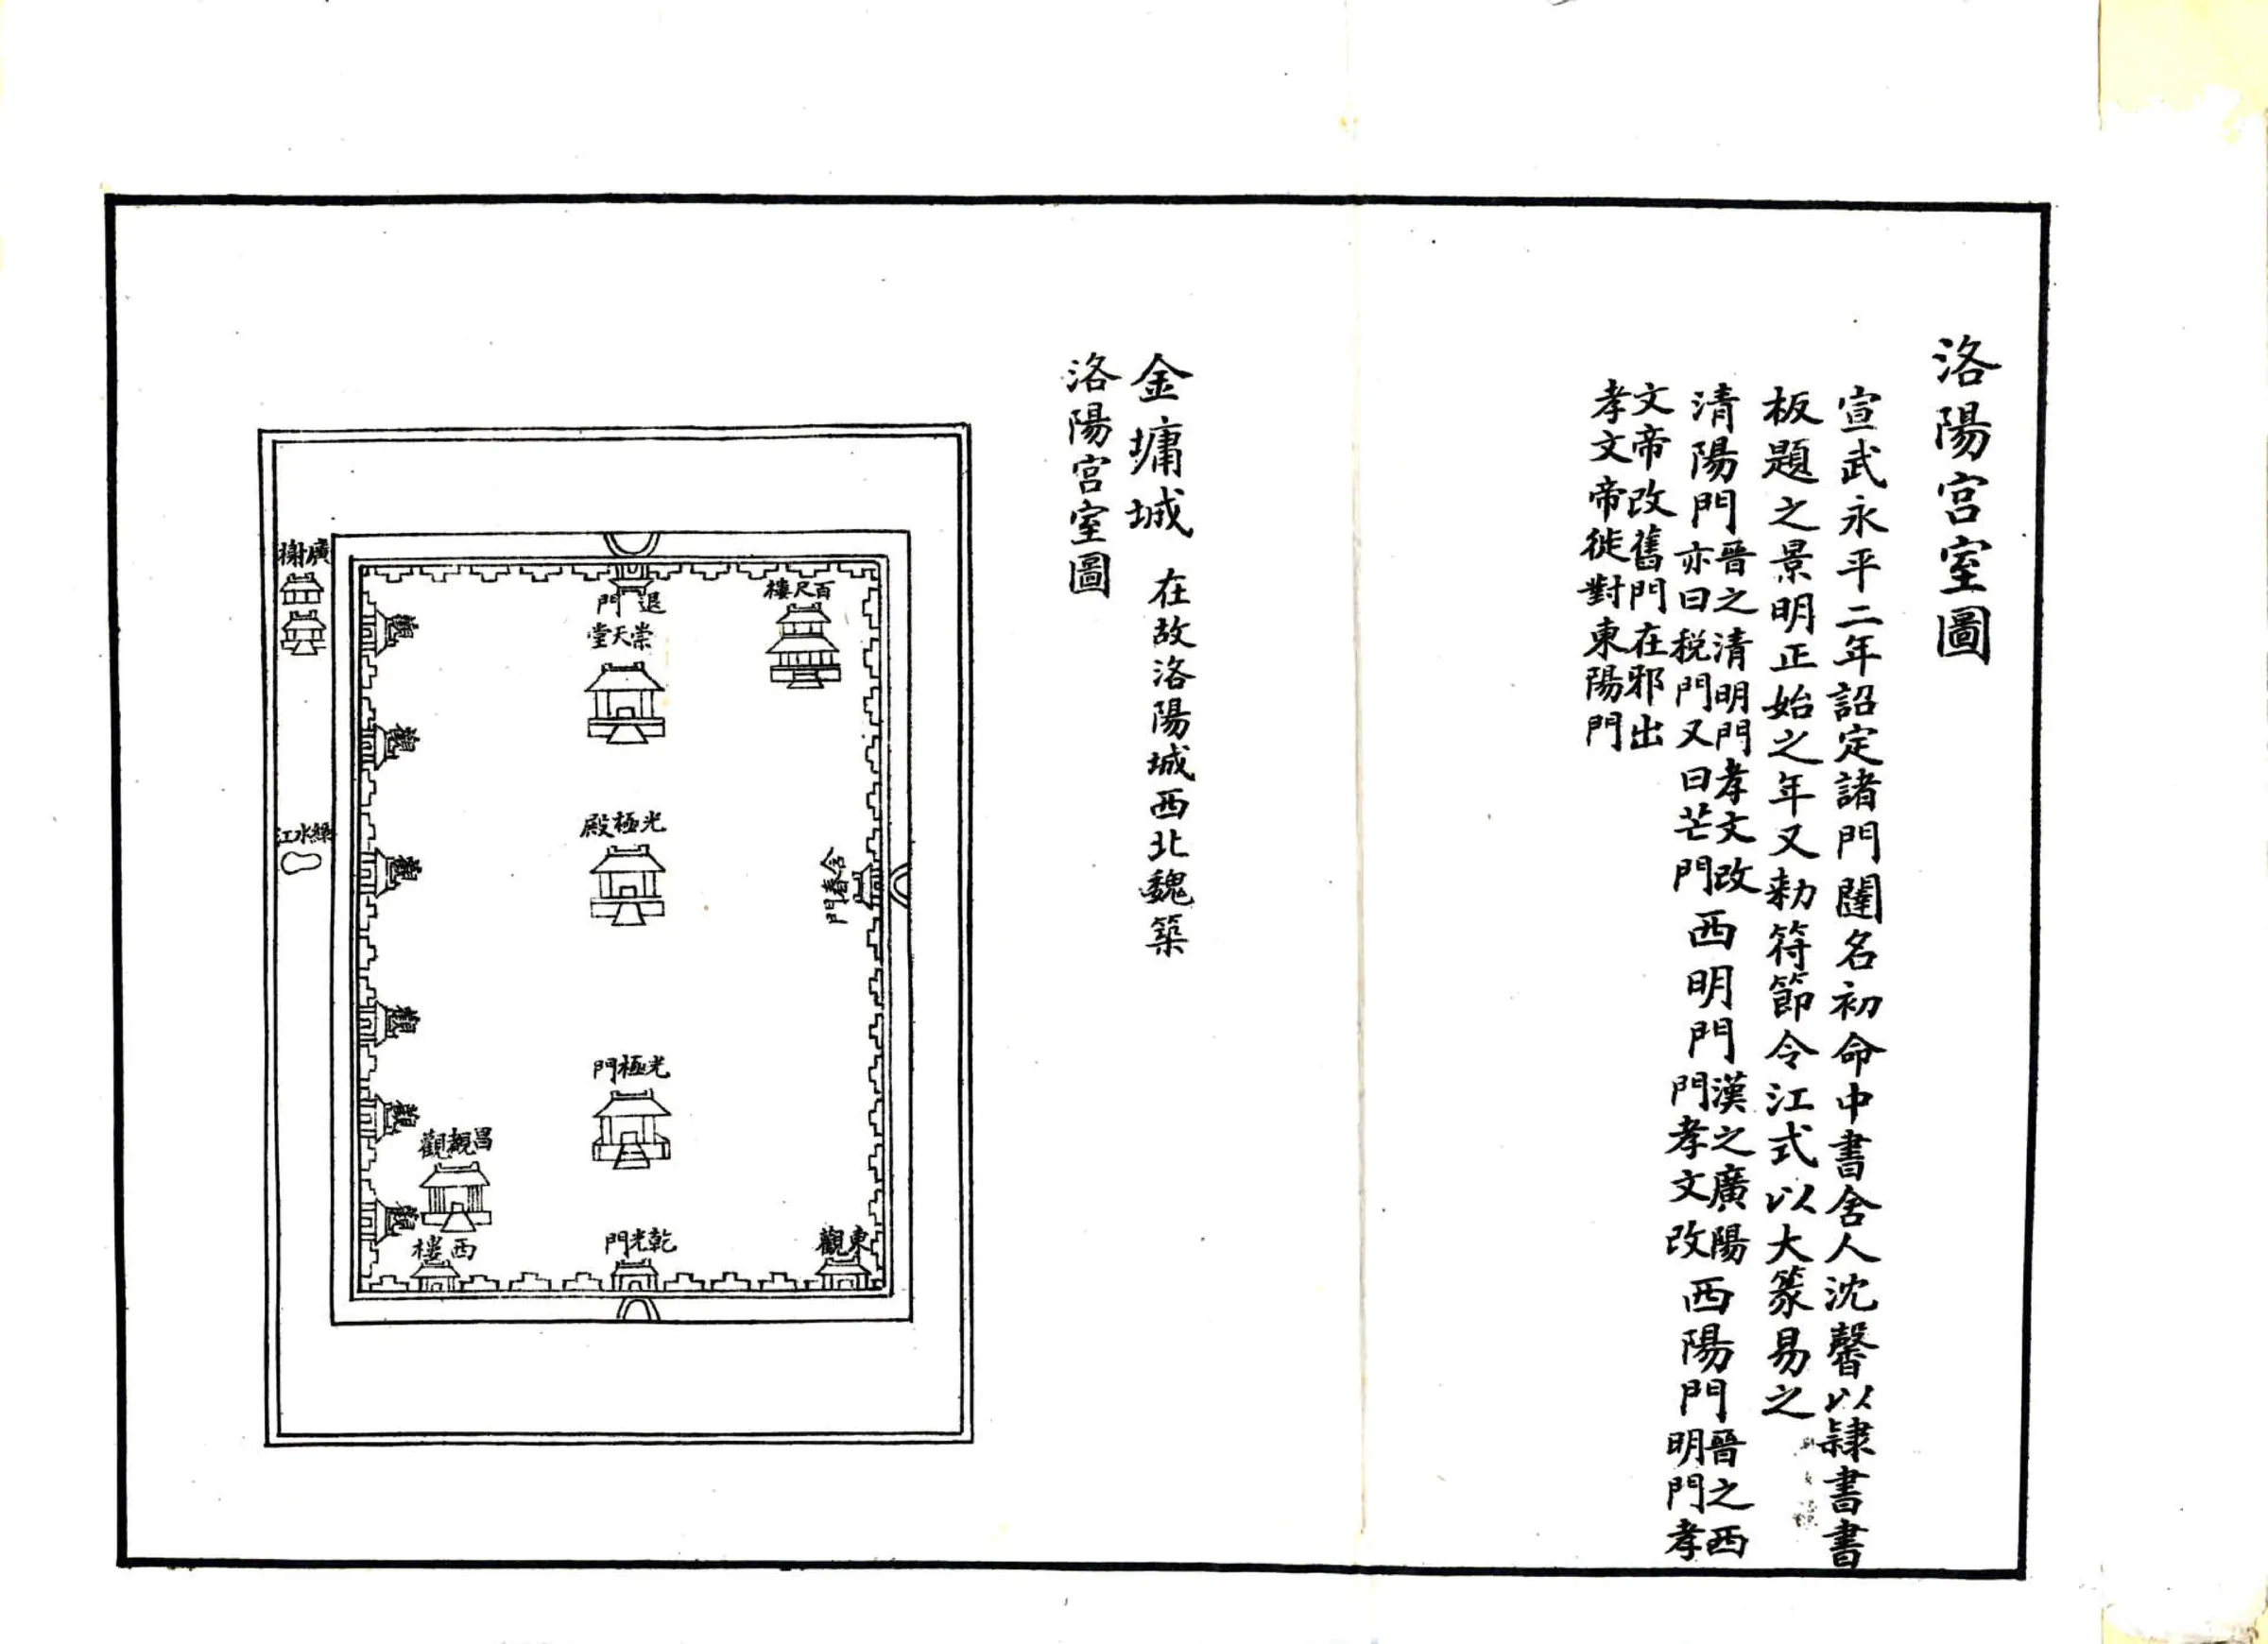 洛陽宮室圖
宣武永平二年詔定諸門闥名初命中書舍人沈馨以隷書書
板題之景明正始之年又勑符節令江式以大篆易之
清陽門
晉之清明門孝文改
亦曰税門又曰芒門
西明門
漢之廣陽
門孝文改
西陽門
晉之西
明門孝
文帝改舊門在邪出
孝文帝徙對東陽門
金墉城 在故洛陽城西北魏築
洛陽宮室圖
百尺樓
退門
崇天堂
廣榭
觀
觀
光極殿
含春門
綠水江
觀
觀
光極門
觀
昌觀觀
觀
東觀
乾光門
西樓